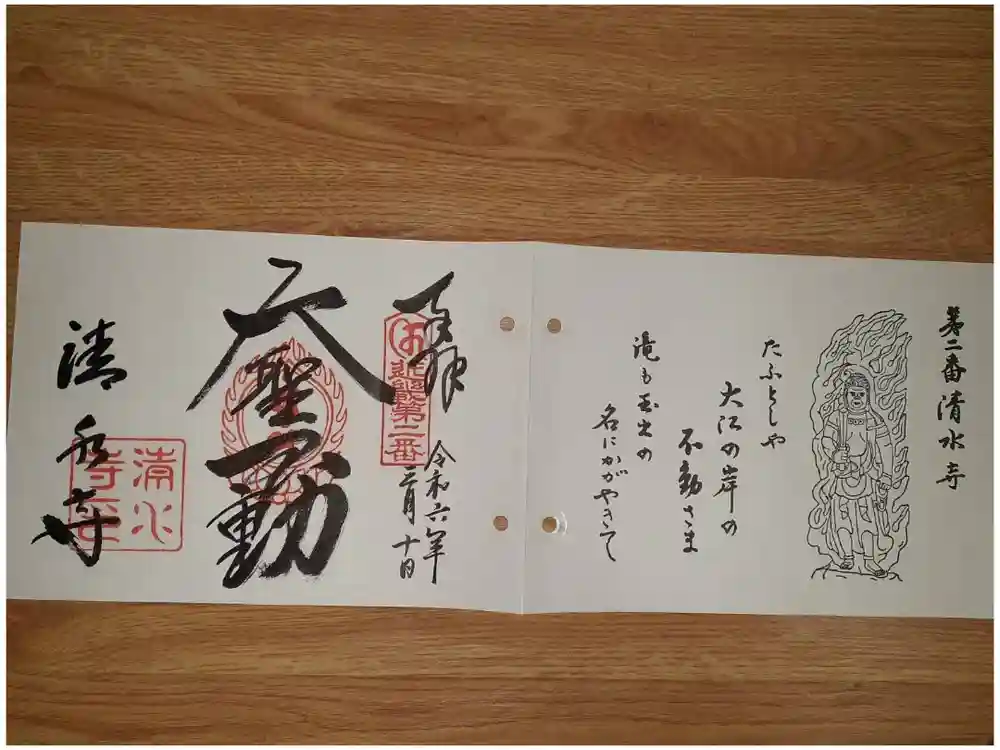 第二番清水寺
たふとしや
大江の岸の
不動さま
滝も玉出の
名にかがやきて
奉拝
近畿第二番
令和六年
三月十日
大聖不動
清水寺
清水
寺